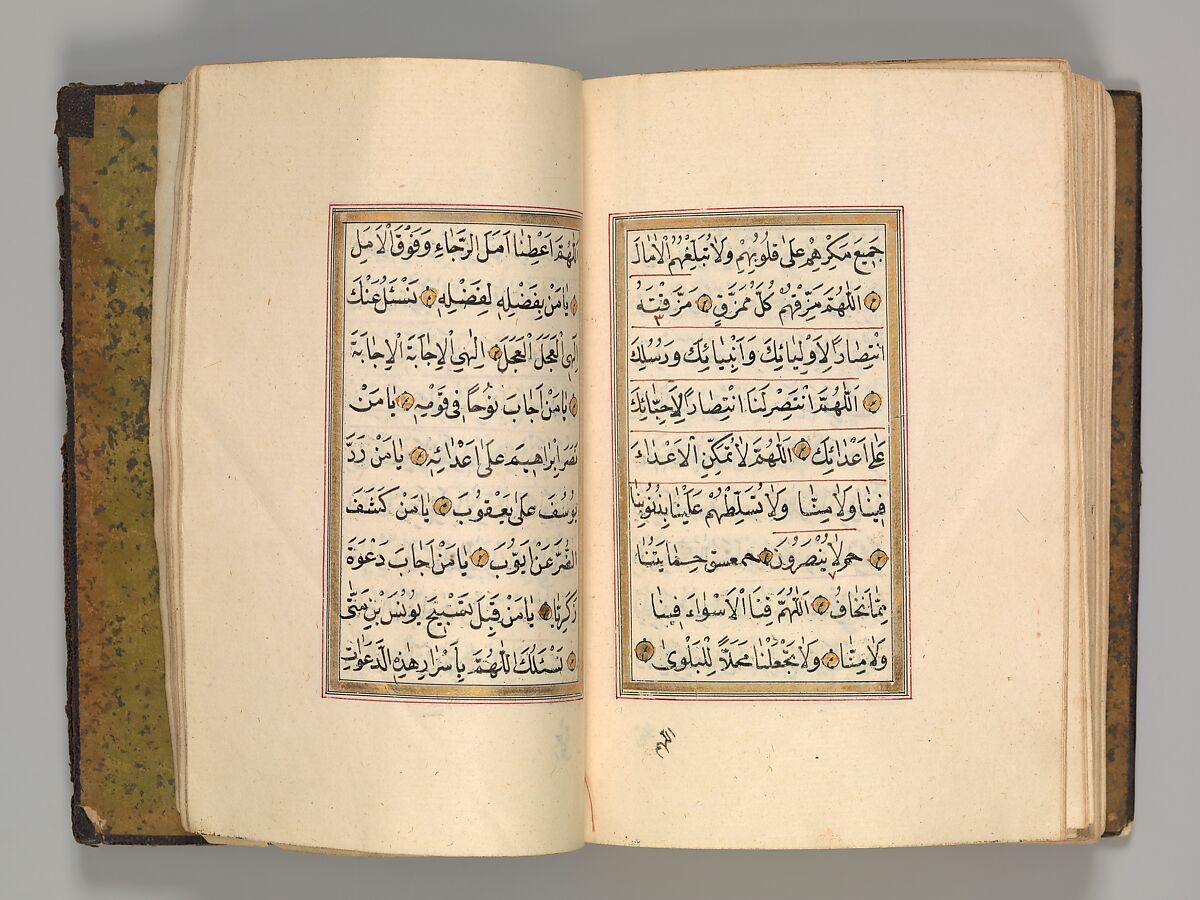 جَمِيعَ مَكْرِهِمْ عَلٰى قُلُوبِهِمْ وَلَا تُبَلِّغْهُمُ الْاٰمَالَ
اَللّٰهُمَّ مَزِّقْهُمْ كُلَّ مُمَزَّقٍ مَزَّقْتَهُ
٣
انْتِصَارًا لِاَوْلِيَائِكَ وَاَنْبِيَائِكَ وَرُسُلِكَ
اَللّٰهُمَّ انْتَصِرْ لَنَا انْتِصَارًا لِاَحِبَّائِكَ
عَلٰى اَعْدَائِكَ اَللّٰهُمَّ لَا تُمَكِّنِ الْاَعْدَاءَ
فِينَا وَلَا مِنَّا وَلَا تُسَلِّطْهُمْ عَلَيْنَا بِذُنُوبِنَا
حم لَا يُنْصَرُونَ حمعسق حِمَايَتُنَا
٧
مِمَّا نَخَافُ اَللّٰهُمَّ قِنَا الْاَسْوَاءَ فِينَا
وَلَا مِنَّا وَلَا تَجْعَلْنَا مَحَلًّا لِلْبَلْوٰى
اللهم
اَللّٰهُمَّ اَعْطِنَا اَمَلَ الرَّجَاءِ وَفَوْقَ الْاَمَلِ
يَا مَنْ بِفَضْلِهِ لِفَضْلِهِ نَسْئَلُ عَنْكَ
اِلٰهِي الْعَجَلَ الْعَجَلَ اِلٰهِي الْاِجَابَةَ الْاِجَابَةَ
يَا مَنْ اَجَابَ نُوحًا فِي قَوْمِهِ يَا مَنْ
نَصَرَ اِبْرَاهِيمَ عَلٰى اَعْدَائِهِ يَا مَنْ رَدَّ
يُوسُفَ عَلٰى يَعْقُوبَ يَا مَنْ كَشَفَ
الضُّرَّ عَنْ اَيُّوبَ يَا مَنْ اَجَابَ دَعْوَةَ
زَكَرِيَّا يَا مَنْ قَبِلَ تَسْبِيحَ يُونُسَ بْنِ مَتّٰى
نَسْئَلُكَ اللّٰهُمَّ بِاَسْرَارِ هٰذِهِ الدَّعَوَاتِ